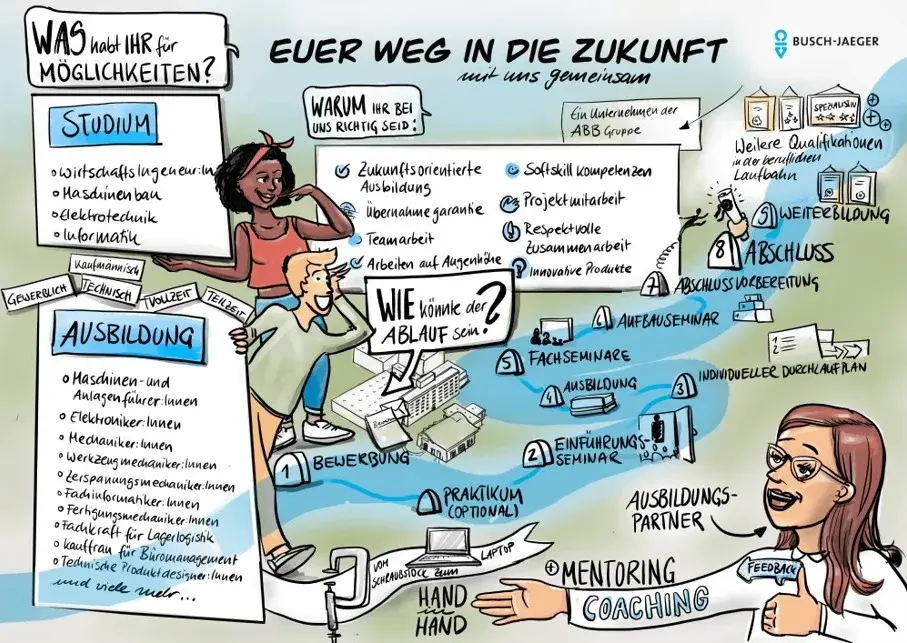 WAS habt IHR für
MÖGLICHKEITEN?
EUER WEG IN DIE ZUKUNFT
mit uns gemeinsam
BUSCH-JAEGER
STUDIUM
Wirtschaftsingeneur:In
Maschinenbau
Elektrotechnik
Informatik
WARUM IHR BEI
UNS RICHTIG SEID!
Ein Unternehmen der
ABB Gruppe
Zukunftsorientierte
Ausbildung
Übernahme garantie
Teamarbeit
Arbeiten auf Augenhöhe
Softskill kompetenzen
Projektmitarbeit
Respektvolle
Zusammenarbeit
Innovative Produkte
SPEZIALIST:IN
Weitere Qualifikationen
in der beruflichen
Laufbahn
9 WEITERBILDUNG
8 ABSCHLUSS
7 ABSCHLUSSVORBEREITUNG
6 AUFBAUSEMINAR
5 FACHSEMINARE
4 AUSBILDUNG
3 INDIVIDUELLER DURCHLAUFPLAN
1
2
GEWERBLICH
Kaufmännisch
TECHNISCH
VOLLZEIT
TEILZEIT
AUSBILDUNG
Maschinen- und
Anlagenführer:Innen
Elektroniker:Innen
Mechaniker:Innen
Werkzeugmechaniker:Innen
Zerspanungsmechaniker:Innen
Fachinformatiker:Innen
Fertigungsmechaniker:Innen
Fachkraft für Lagerlogistik
Kauffrau für Büromanagement
Technische Produktdesigner:Innen
und viele mehr...
WIE könnte der
ABLAUF sein?
1 BEWERBUNG
PRAKTIKUM
(OPTIONAL)
2 EINFÜHRUNGS-
SEMINAR
AUSBILDUNGS-
PARTNER
VOM
SCHRAUBSTOCK ZUM
LAPTOP
HAND
in
HAND
+ MENTORING
COACHING
FEEDBACK